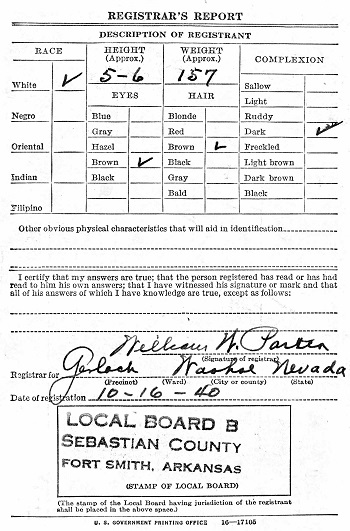 REGISTRAR'S REPORT
DESCRIPTION OF REGISTRANT
RACE HEIGHT (Approx.) WEIGHT (Approx.) COMPLEXION
White ✓ 5-6 157 Sallow
EYES HAIR Light
Negro Blue Blonde Ruddy
Gray Red Dark ✓
Oriental Hazel Brown ✓ Freckled
Brown ✓ Black Light brown
Indian Black Gray Dark brown
Bald Black
Filipino
Other obvious physical characteristics that will aid in identification
I certify that my answers are true; that the person registered has read or has had
read to him his own answers; that I have witnessed his signature or mark and that
all of his answers of which I have knowledge are true, except as follows:
William W.
(Signature of registrar)
Registrar for Gerlach Washoe Nevada
(Precinct) (Ward) (City or county) (State)
Date of registration 10-16-40
LOCAL BOARD B
SEBASTIAN COUNTY
FORT SMITH, ARKANSAS
(STAMP OF LOCAL BOARD)
(The stamp of the Local Board having jurisdiction of the registrant
shall be placed in the above space.)
U. S. GOVERNMENT PRINTING OFFICE 16—17105